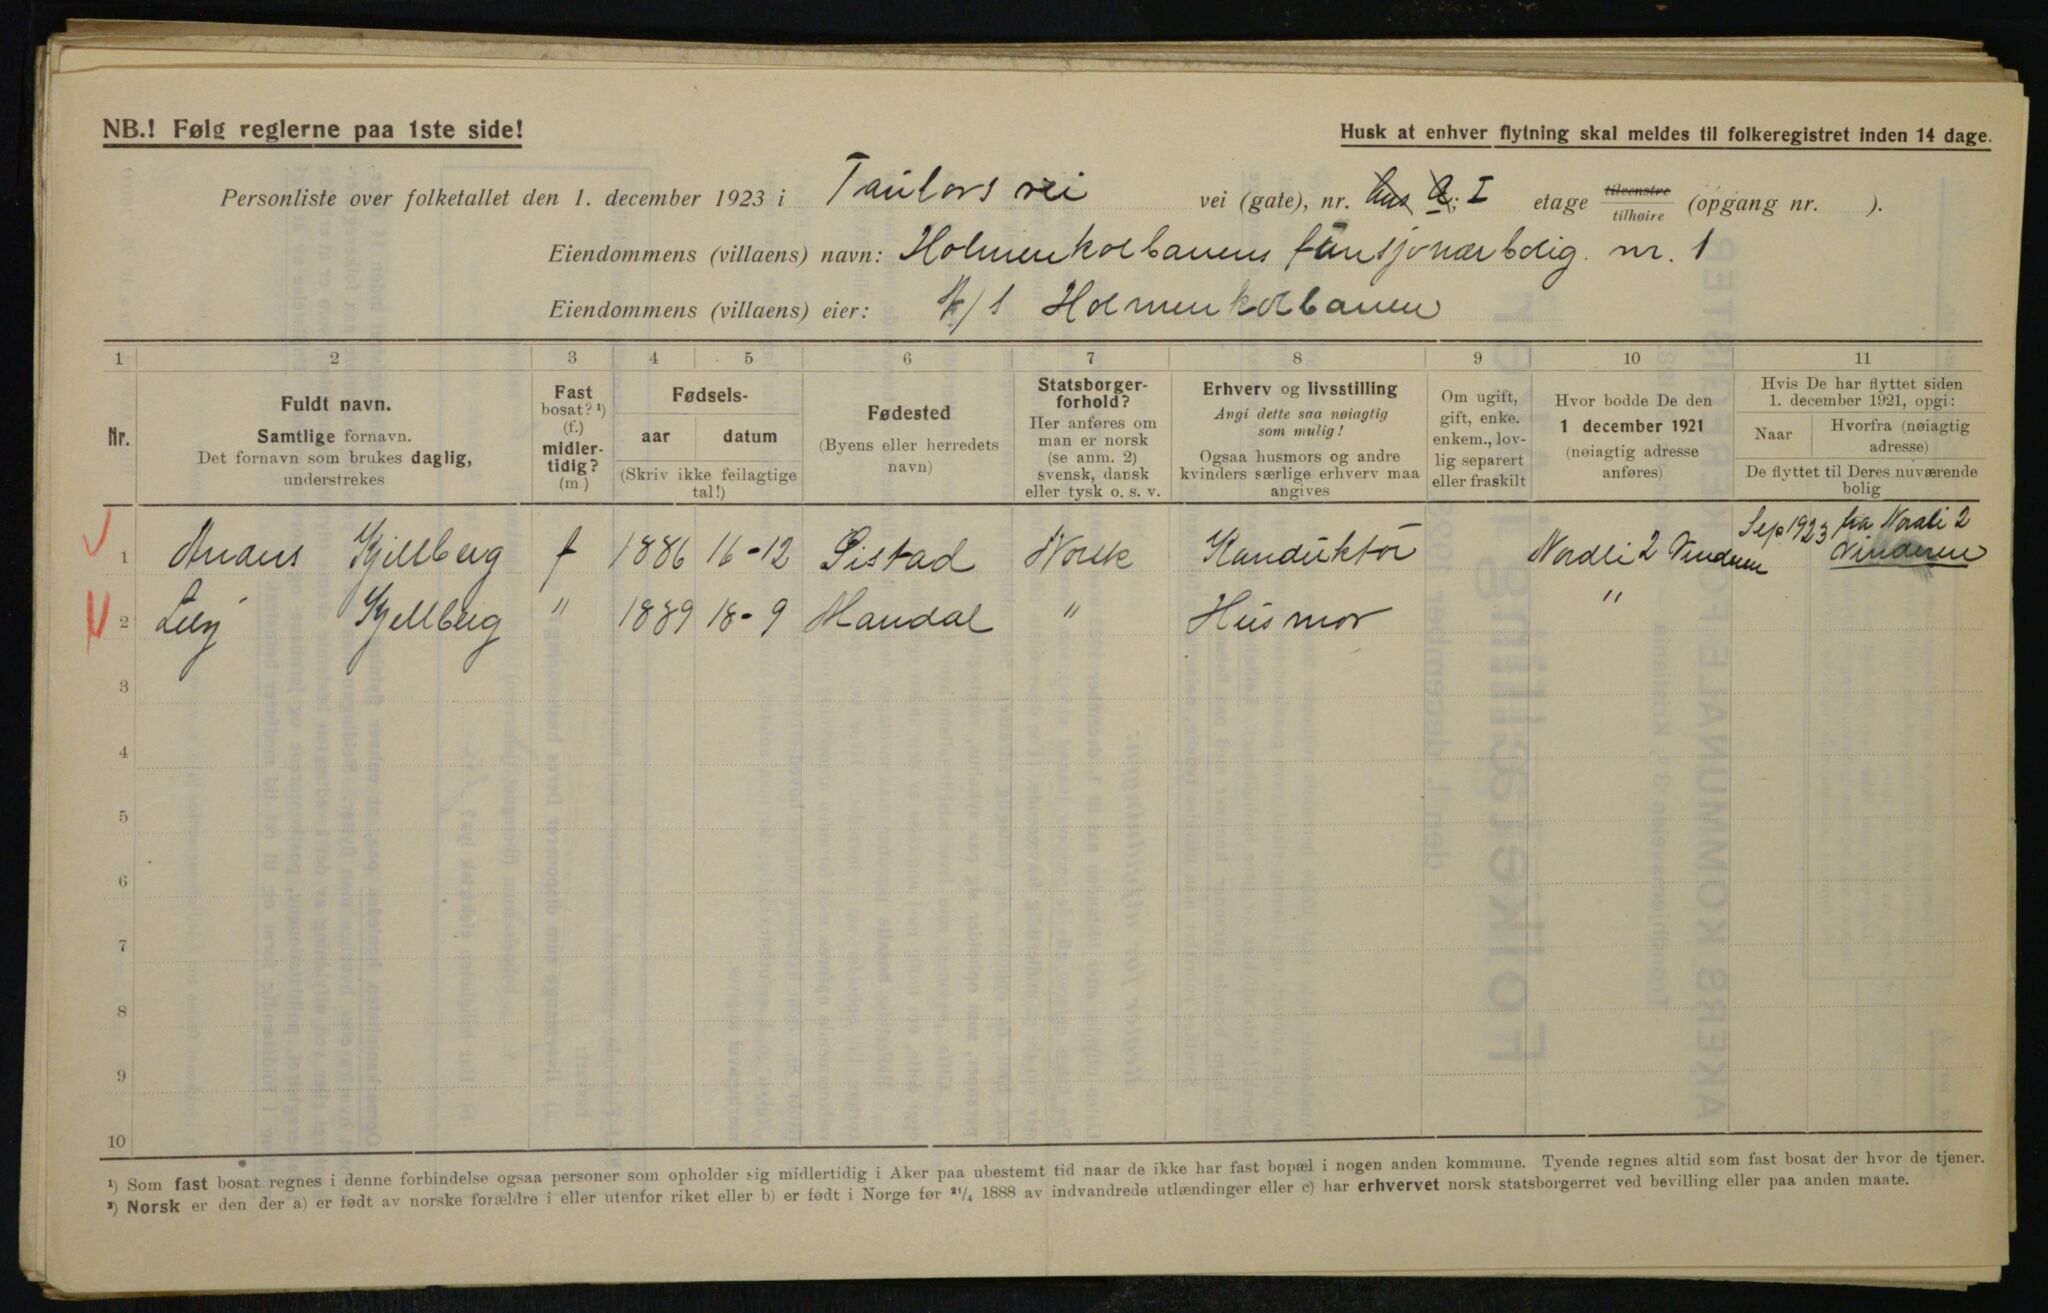 NB.! Følg reglerne paa 1ste side!
Husk at enhver flytning skal meldes til folkeregistret inden 14 dage.
Personliste over folketallet den 1. december 1923 i Taulors vei vei (gate), nr. hus A; I etage tilvenstre tilhøire (opgang nr. ).
Eiendommens (villaens) navn: Holmenkolbanens funsjonærbolig. nr. 1
Eiendommens (villaens) eier: A/S Holmenkolbanen
1 2 3 4 5 6 7 8 9 10 11
Nr.
Fuldt navn.
Samtlige fornavn.
Det fornavn som brukes daglig,
understrekes
Fast
bosat? ¹)
(f.)
midler-
tidig?
(m.)
Fødsels-
aar datum
(Skriv ikke feilagtige
tal!)
Fødested
(Byens eller herredets
navn)
Statsborger-
forhold?
Her anføres om
man er norsk
(se anm. 2)
svensk, dansk
eller tysk o. s. v.
Erhverv og livsstilling
Angi dette saa nøiagtig
som mulig!
Ogsaa husmors og andre
kvinders særlige erhverv maa
angives
Om ugift,
gift, enke.
enkem., lov-
lig separert
eller fraskilt
Hvor bodde De den
1 december 1921
(nøiagtig adresse
anføres)
Hvis De har flyttet siden
1. december 1921, opgi:
Naar
Hvorfra (nøiagtig
adresse)
De flyttet til Deres nuværende
bolig
1 Anders Kjellberg f 1886 16-12 Sistad Norsk Konduktør Nordli 2 Vinderen Sep 1923 fra Nordli 2 Vinderen
2 Lily Kjellberg " 1889 18-9 Mandal " Husmor "
3
4
5
6
7
8
9
10
¹) Som fast bosat regnes i denne forbindelse ogsaa personer som opholder sig midlertidig i Aker paa ubestemt tid naar de ikke har fast bopæl i nogen anden kommune. Tyende regnes altid som fast bosat der hvor de tjener.
²) Norsk er den der a) er født av norske forældre i eller utenfor riket eller b) er født i Norge før ²¹/₄ 1888 av indvandrede utlændinger eller c) har erhvervet norsk statsborgerret ved bevilling eller paa anden maate.